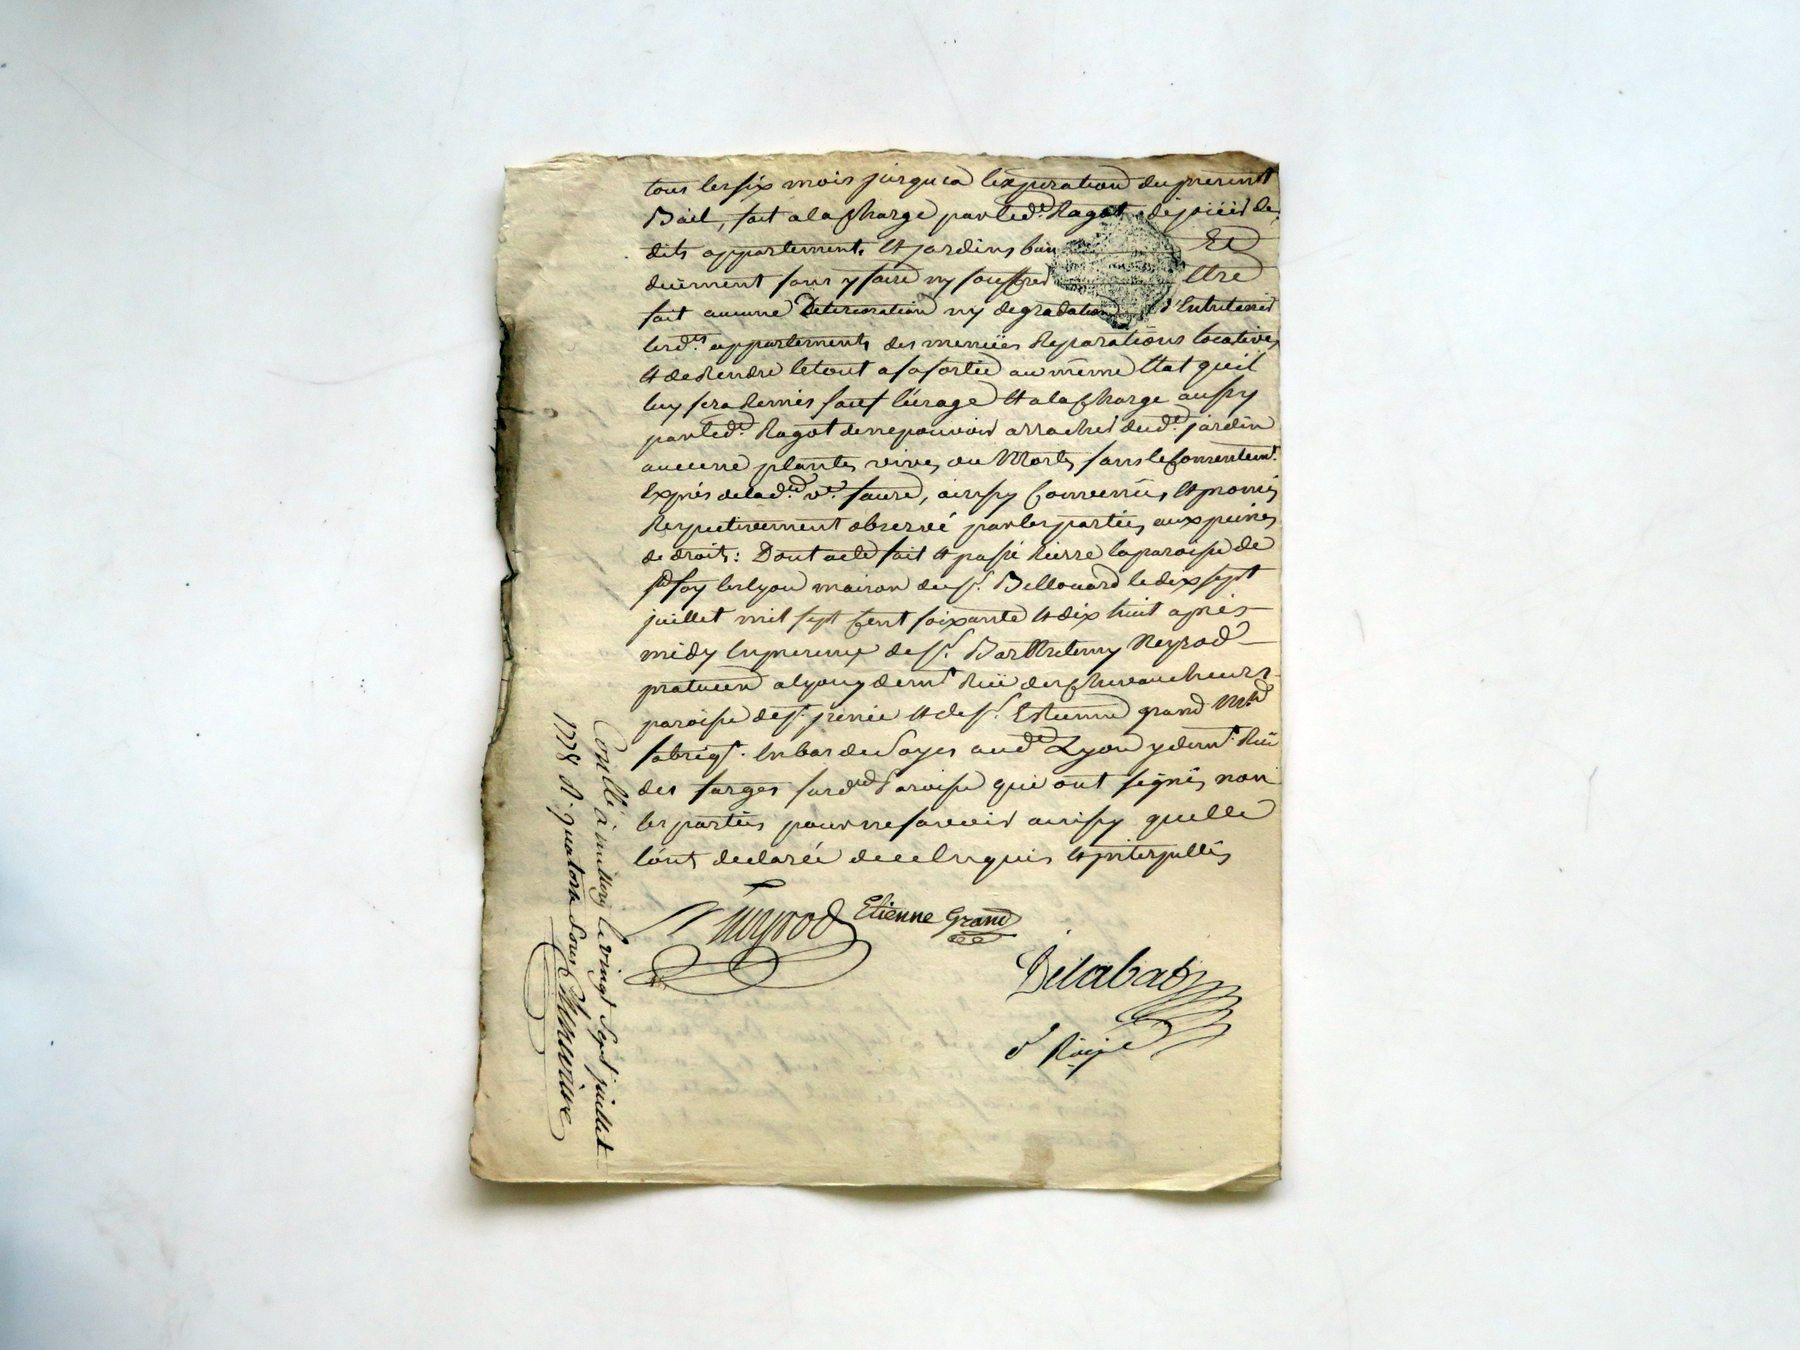 tous les six mois jusqu'a l'expiration du present
Bail, fait a la charge par led.t Ragot de jouir des
dits appartements et jardins bien Et
deuement sans y faire ny souffrir Etre
fait aucune Deterioration ny degradation d'Entretenir
lesd.ts appartements des menües Reparations locatives
et de Rendre le tout a sa sortie au même Etat qu'il
luy sera Remis sauf l'usage et a la charge aussy
par led.t Ragot de ne pouvoir arracher dud.t jardin
aucune plantes vives ou Mortes sans le Consentem.t
Exprés de lad.te v.e faure, ainsy Convenües et promis
Respectivement observé par les parties aux peines
de droit: Dont acte fait et passé Riere la paroisse de
s.te foy les lyon maison du s.r Billouard le dix sept
juillet mil sept Cent soixante et dix huit après
midy En presence de s.r Barthelemy Neyrod
praticien a lyon y demt Ruë des Chevaucheurs
paroisse de s.t jrenée et de s.r Etienne grand M.d
fabriqt. En bas de soyes aud.t Lyon y demt. Ruë
des farges susd.te Paroisse qui ont signés non
les parties pour ne savoir ainsy qu'elle
l'ont declarée de ce Enquis et jnterpellés
Neyrod Etienne Grand
Delabat
Contllé à le vingt Sept juillet
1778 R. quatorze sous